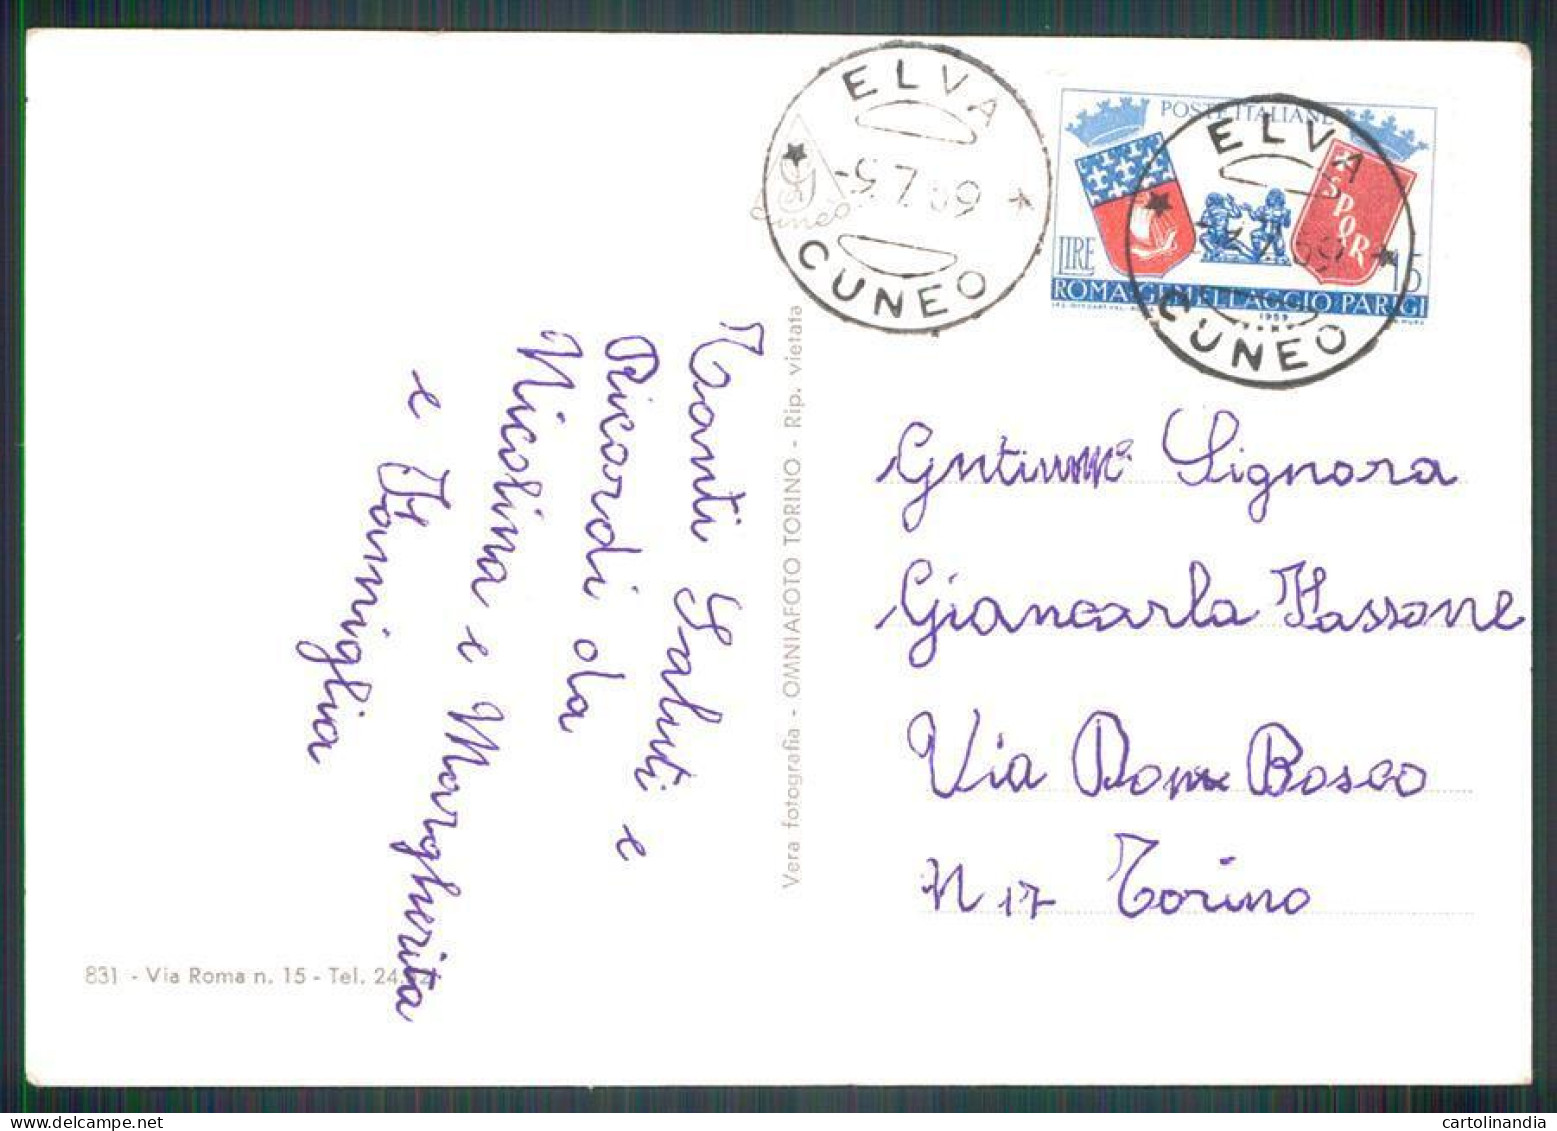 ELVA
-5.7.59
CUNEO
POSTE ITALIANE
SPQR
LIRE 15
ROMA GEMELLAGGIO PARIGI
1959
ELVA
CUNEO
Tanti Saluti e
Ricordi da
Nicolina e Margherita
e Famiglia
Vera fotografia - OMNIAFOTO TORINO - Rip. vietata
Signora
Giancarla Fassone
Via Don Bosco
N 17 Torino
831 - Via Roma n. 15 - Tel.
cartolinandia